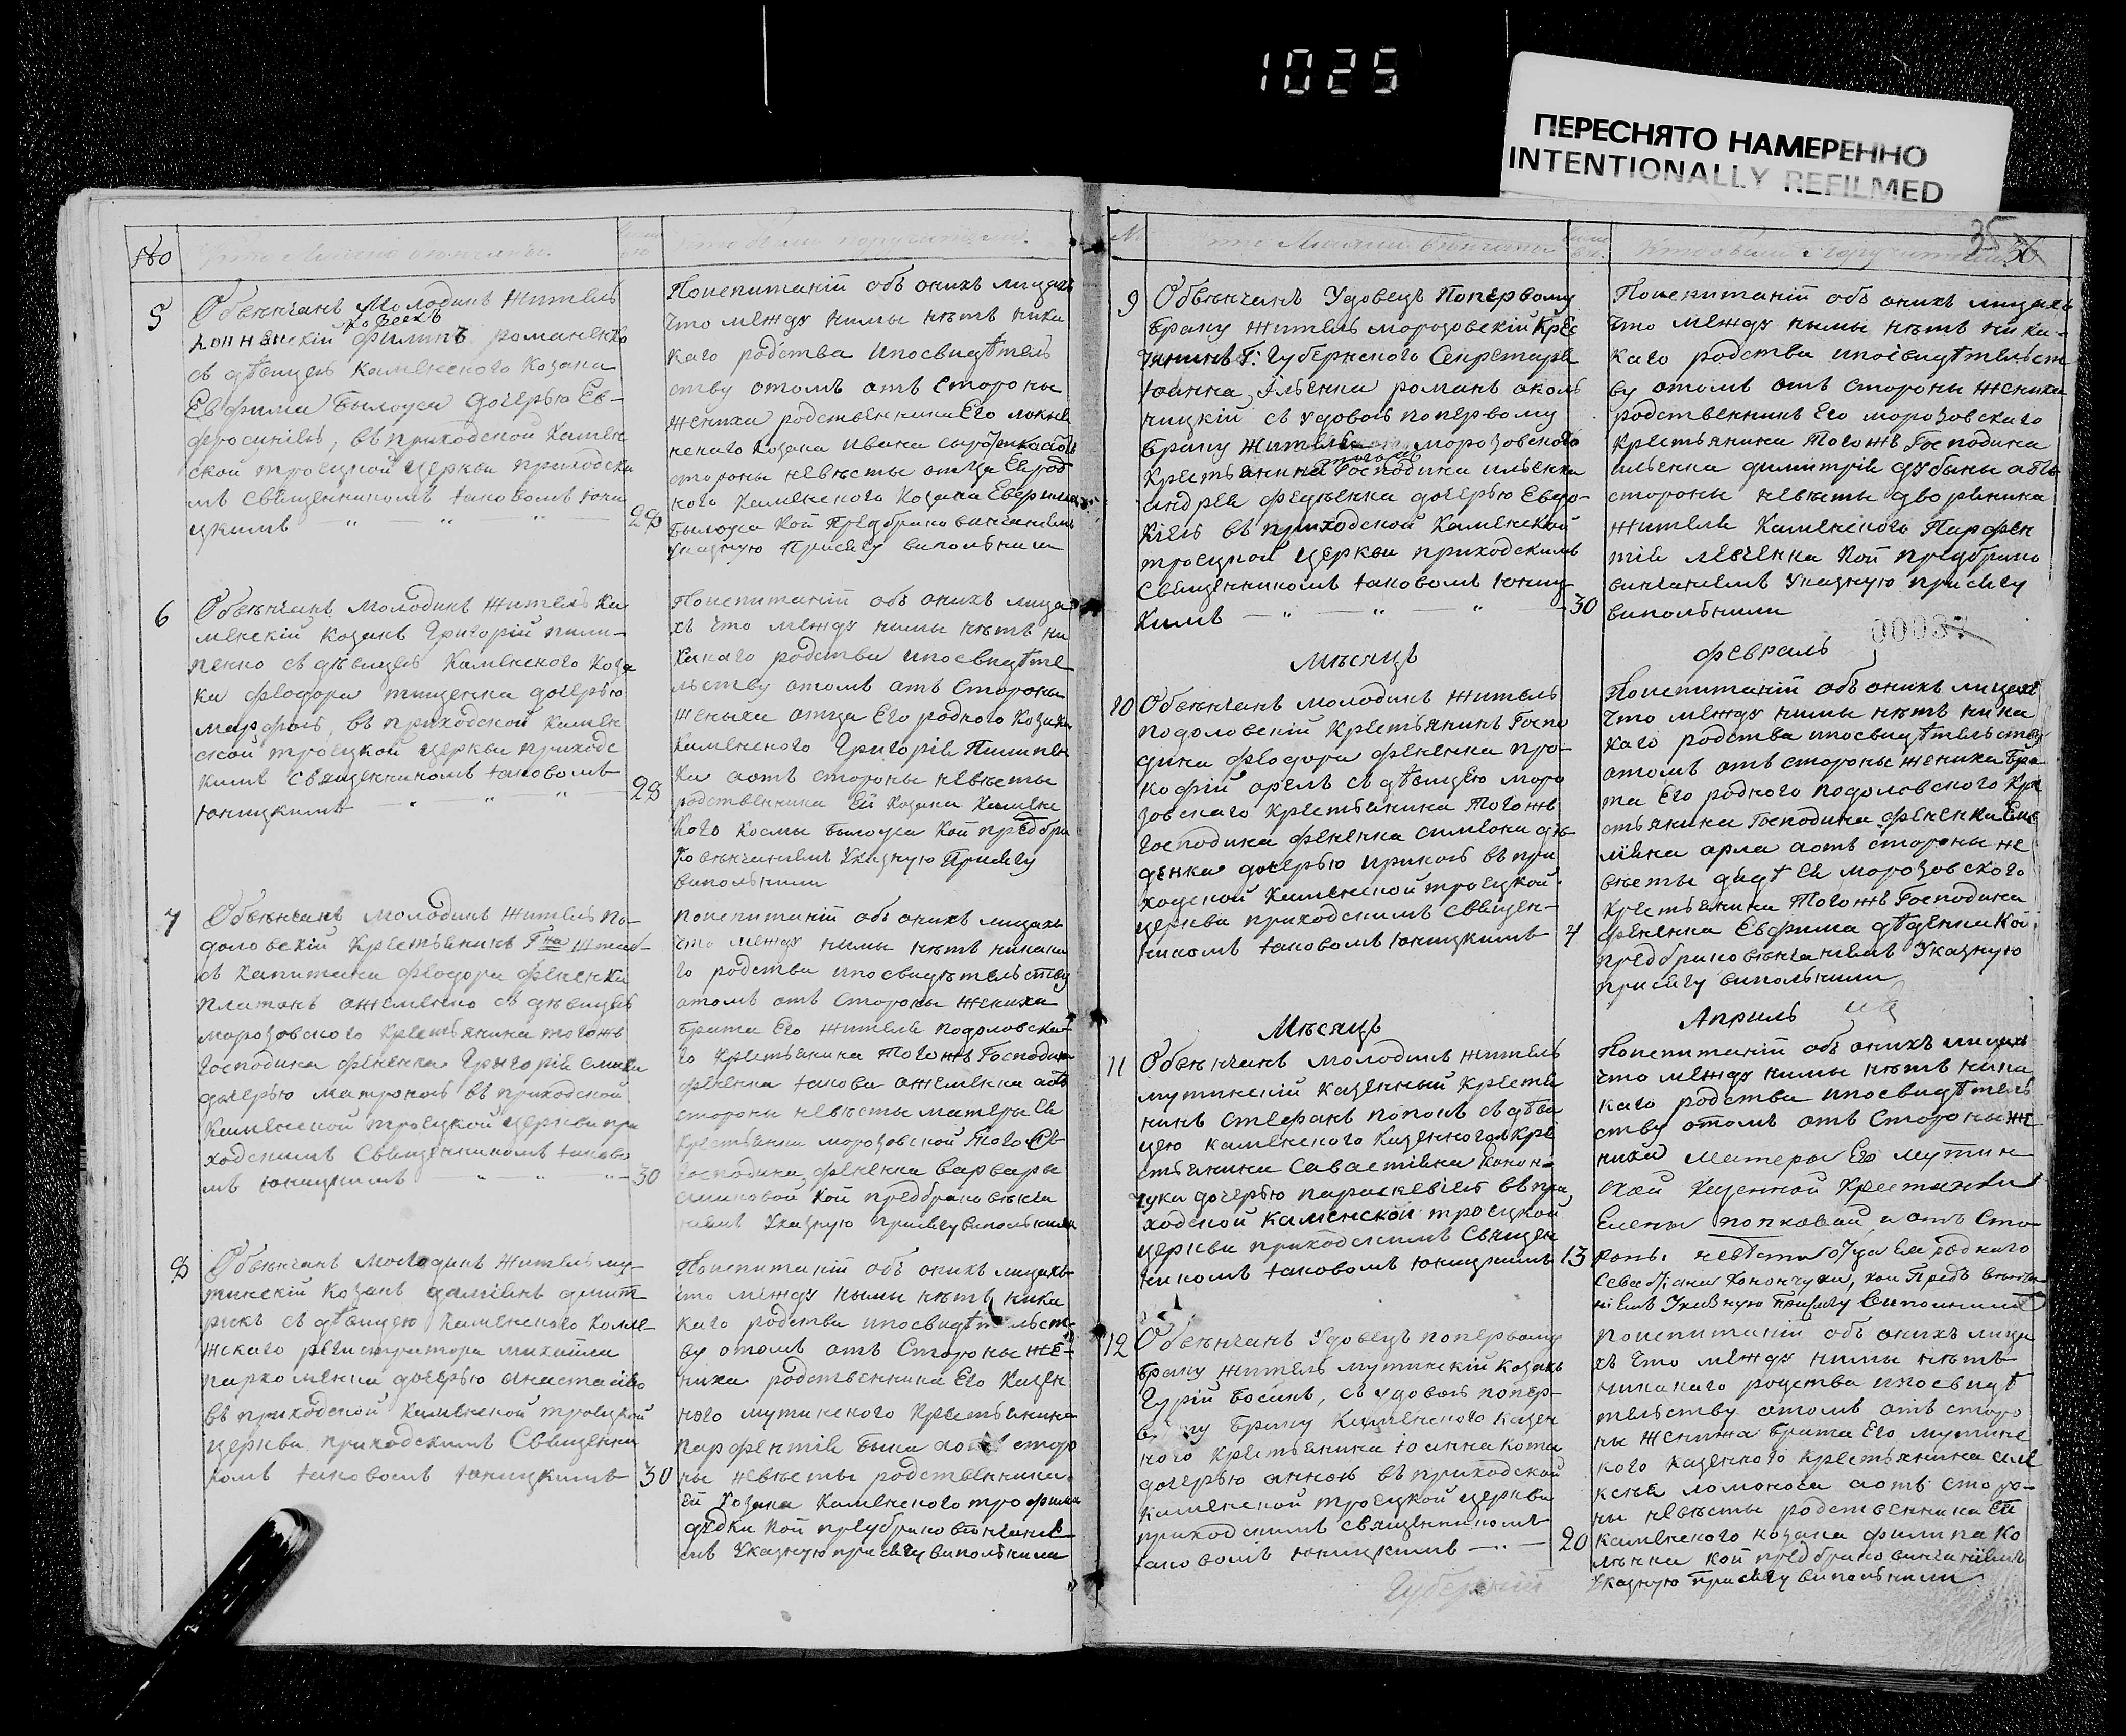 1025
ПЕРЕСНЯТО НАМЕРЕННО
INTENTIONALLY REFILMED
35 36
№
кто были поручители.
5
Обвѣнчанъ Молодикъ житель
козакъ
филипъ романенко
съ дѣвицею Каменского Козака
Евфима Билоуса дочерью Ев-
фросиніею, въ приходской Камен
ской троецкой церкви приходски
мъ Священникомъ Іаковомъ Юни
цкимъ
28
Поиспитаній объ онихъ лицахъ
что между нимы нѣтъ ника
каго родства ипосвидѣтель
ству отомъ отъ Стороны
жениха родственника Его
Козака Ивана
стороны невѣсты отца Ея род
ного Каменского Козака
Билоуса Кои предбрако винчаниемъ
Указную Присягу виполънили
6
Обвѣнчанъ молодикъ житель Ка
менскій козакъ Григорій пили-
пенко съ дѣвицею Каменского Коза
ка Феодора тищенка дочерью
марфою, въ приходской Камен
ской троецкой церкви приходс
кимъ Священникомъ Іаковомъ
Юницкимъ
28
Поиспитаній объ онихъ лица
хъ что между нимы нѣтъ ни
какаго родства ипосвидѣте
льству отомъ отъ Стороны
женыха отца Его родного Козака
Каменского Григорія Пилипен
ка аотъ стороны невѣсты
родственника Ей Козака Каменс
кого Космы Билоуса Кои предбра
ко вѣнчаниемъ Указную Присягу
виполънили
7
Обвѣнчанъ молодикъ житель по-
доловскій Крестьянинъ Гна Штаб-
съ Капитана Феодора Фененка
Платонъ ожеменко съ дѣвицею
морозовского Крестьянина тогожъ
Господина Фененка Григорія
дочерью матроною въ приходской
Каменской троецкой церкви при
ходскимъ Священникомъ Іаково
мъ Юницкимъ
30
Поиспитаній объ онихъ лицахъ
что между нимы нѣтъ никака
го родства ипосвидѣтельству
отомъ отъ стороны жениха
брата Его жителя подоловска-
го Крестьянина Тогожъ Господина
Фененка Іакова ожеменка аотъ
стороны невѣсты матеры Ея
Крестьянки морозовской
Господина Фененка Варвары
Кои предбрако вѣнча
ниемъ Указную присягу виполънили
8
Обвѣнчанъ молодикъ житель му-
тинскій Козакъ даміянъ
съ дѣвицею Каменского Колле-
жскаго регистратора михаила
пархоменка дочерью Анастасіею
въ приходской Каменской троецкой
церкви приходскимъ Священни
комъ Іаковомъ Юницкимъ
30
Поиспитаній объ онихъ лицахъ
что между нымы нѣтъ ника
каго родства ипосвидѣтельст
ву отомъ отъ Стороны же-
ниха родственника Его Казен
ного мутинского Крестьянина
Парфентія Быка аотъ сторо
ны невѣсты родственника
Ей Козака Каменского трофима
дѣдка Кои предбрако вѣнчание
мъ Указную присягу виполънили
9
Обвѣнчанъ Удовецъ Попервому
браку житель морозовскій Крес
тянинъ Г: Губернского Секретаря
Іоанна Ильенка романъ околь
чицкій съ удовою попервому
браку морозовского
Крестьянина Господина ильенка
андрея Федченка дочерью Евдо-
Кіею въ приходской Каменской
троецкой церкви приходскимъ
Священникомъ Іаковомъ Юниц
Кимъ
30
Поиспитаній объ онихъ лицахъ
что между нымы нѣтъ ника-
каго родства ипосвидѣтельст
ву отомъ отъ стороны жениха
родственникъ Его морозовскаго
Крестьянина Тогожъ Господина
ильенка димитрія дубины аотъ
стороны невѣсты дворянина
жителя Каменского Парфен
тія левченка Кои предбрако
винчаниемъ Указную присягу
виполънили
00037
Мѣсяцъ
февраль
10
Обвѣнчанъ молодикъ житель
подоловскій Крестьянинъ Госпо
дина Феодора Фененка про-
кофій орелъ съ дѣвицею моро
зовскаго Крестьянина Тогожъ
Господина Фененка симеона дѣ-
денка дочерью Ириною въ при
ходской Каменской троецкой
церкви приходскимъ Священ-
никомъ Іаковомъ Юницкимъ
4
Поиспитаній объ онихъ лицахъ
что между нимы нѣтъ ника
каго родства ипосвидѣтельству
отомъ отъ стороны жениха бра-
та Его родного подоловского Кре
стьянина Господина Фененка Еме
ліяна орла аотъ стороны не
вѣсты дяди Ея морозовского
Крестьянина Тогожъ Господина
Фененка Евфима дѣденка Кои
предбрако вѣнчаниемъ Указную
присягу виполънили
Мѣсяцъ
Априль
11
Обвѣнчанъ молодикъ житель
мутинскій Казенный Крестя
нинъ Стефанъ попокъ съ дѣви
цею каменского Казенного Кре
стьянина Савастіяна Конон-
чука дочерью параскевіею въ при
ходской Каменской троецкой
церкви приходскимъ Священ
никомъ Іаковомъ Юницкимъ
13
Поиспитаній объ онихъ лицахъ
что между нимы нѣтъ ника
каго родства ипосвидѣтель
ству отомъ отъ Стороны же
ниха матеры Его мутин
ской Казенной Крестянки
Елены попковой, и отъ Сто
роны невѣсты отца Ея родного
Севастіана Конончука, кои Предъ вѣнча
ніемъ Указную Присягу Виполнили
12
Обвѣнчанъ Удовецъ попервому
браку житель мутинскій козакъ
Гурій босикъ, съ удовою попер-
вому браку Каменского казен
ного Крестьянина Іоанна Кота
дочерью анною въ приходской
каменской троецкой церкви
приходскимъ священникомъ
Іаковомъ Юницкимъ
20
Поиспитаній объ онихъ лица
хъ что между нимы нѣтъ
никакаго родства ипосвидѣ
тельству отомъ отъ сторо
ны жениха брата Его мутинс
кого казенного Крестьянина але
ксѣя ломоноса аотъ сторо-
ны невѣсты родственника Ей
каменского козака филипа Ко
Кои предбрако винчаниемъ
Указную присягу виполънили
Губерній